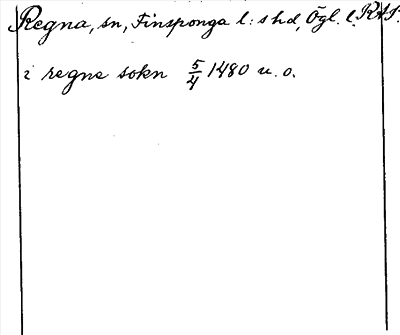 Regna, sn, Finsponga l:s hd, Ögl. l. RAP.
i regne sokn 5/4 1480 u. o.